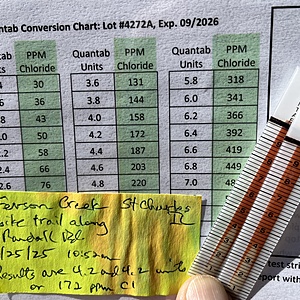 ntab Conversion Chart: Lot #4272A, Exp. 09/2026
ntab PPM Quantab PPM Quantab PPM
Chloride Units Chloride Units Chloride
30 3.6 131 5.8 318
36 3.8 144 6.0 341
43 4.0 158 6.2 366
50 4.2 172 6.4 392
58 4.4 187 6.6 419
66 4.6 203 6.8 449
76 4.8 220 7.0
Creek St Charles
IL
bike trail along
Randall Rd.
/25/25 10:52am
Results are 4.2 and 4.2 units
or 172 ppm Cl
test stri
port with